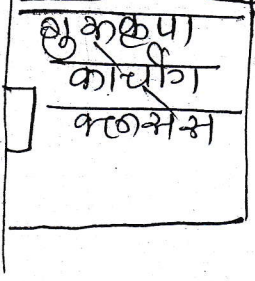 गुरूकृपा
कोचींग
क्लासेस